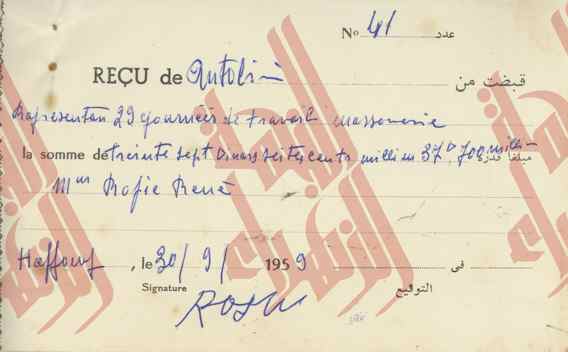 No 41 عدد
REÇU de Antolini قبضت من
Representan 29 journées de travail massonerie
la somme de treinte sept Dinars seitescents millim 37D,700 mills مبلغا قدره
Mme Rafie René
Haffouz, le 30/9/1959 في
Signature التوقيع